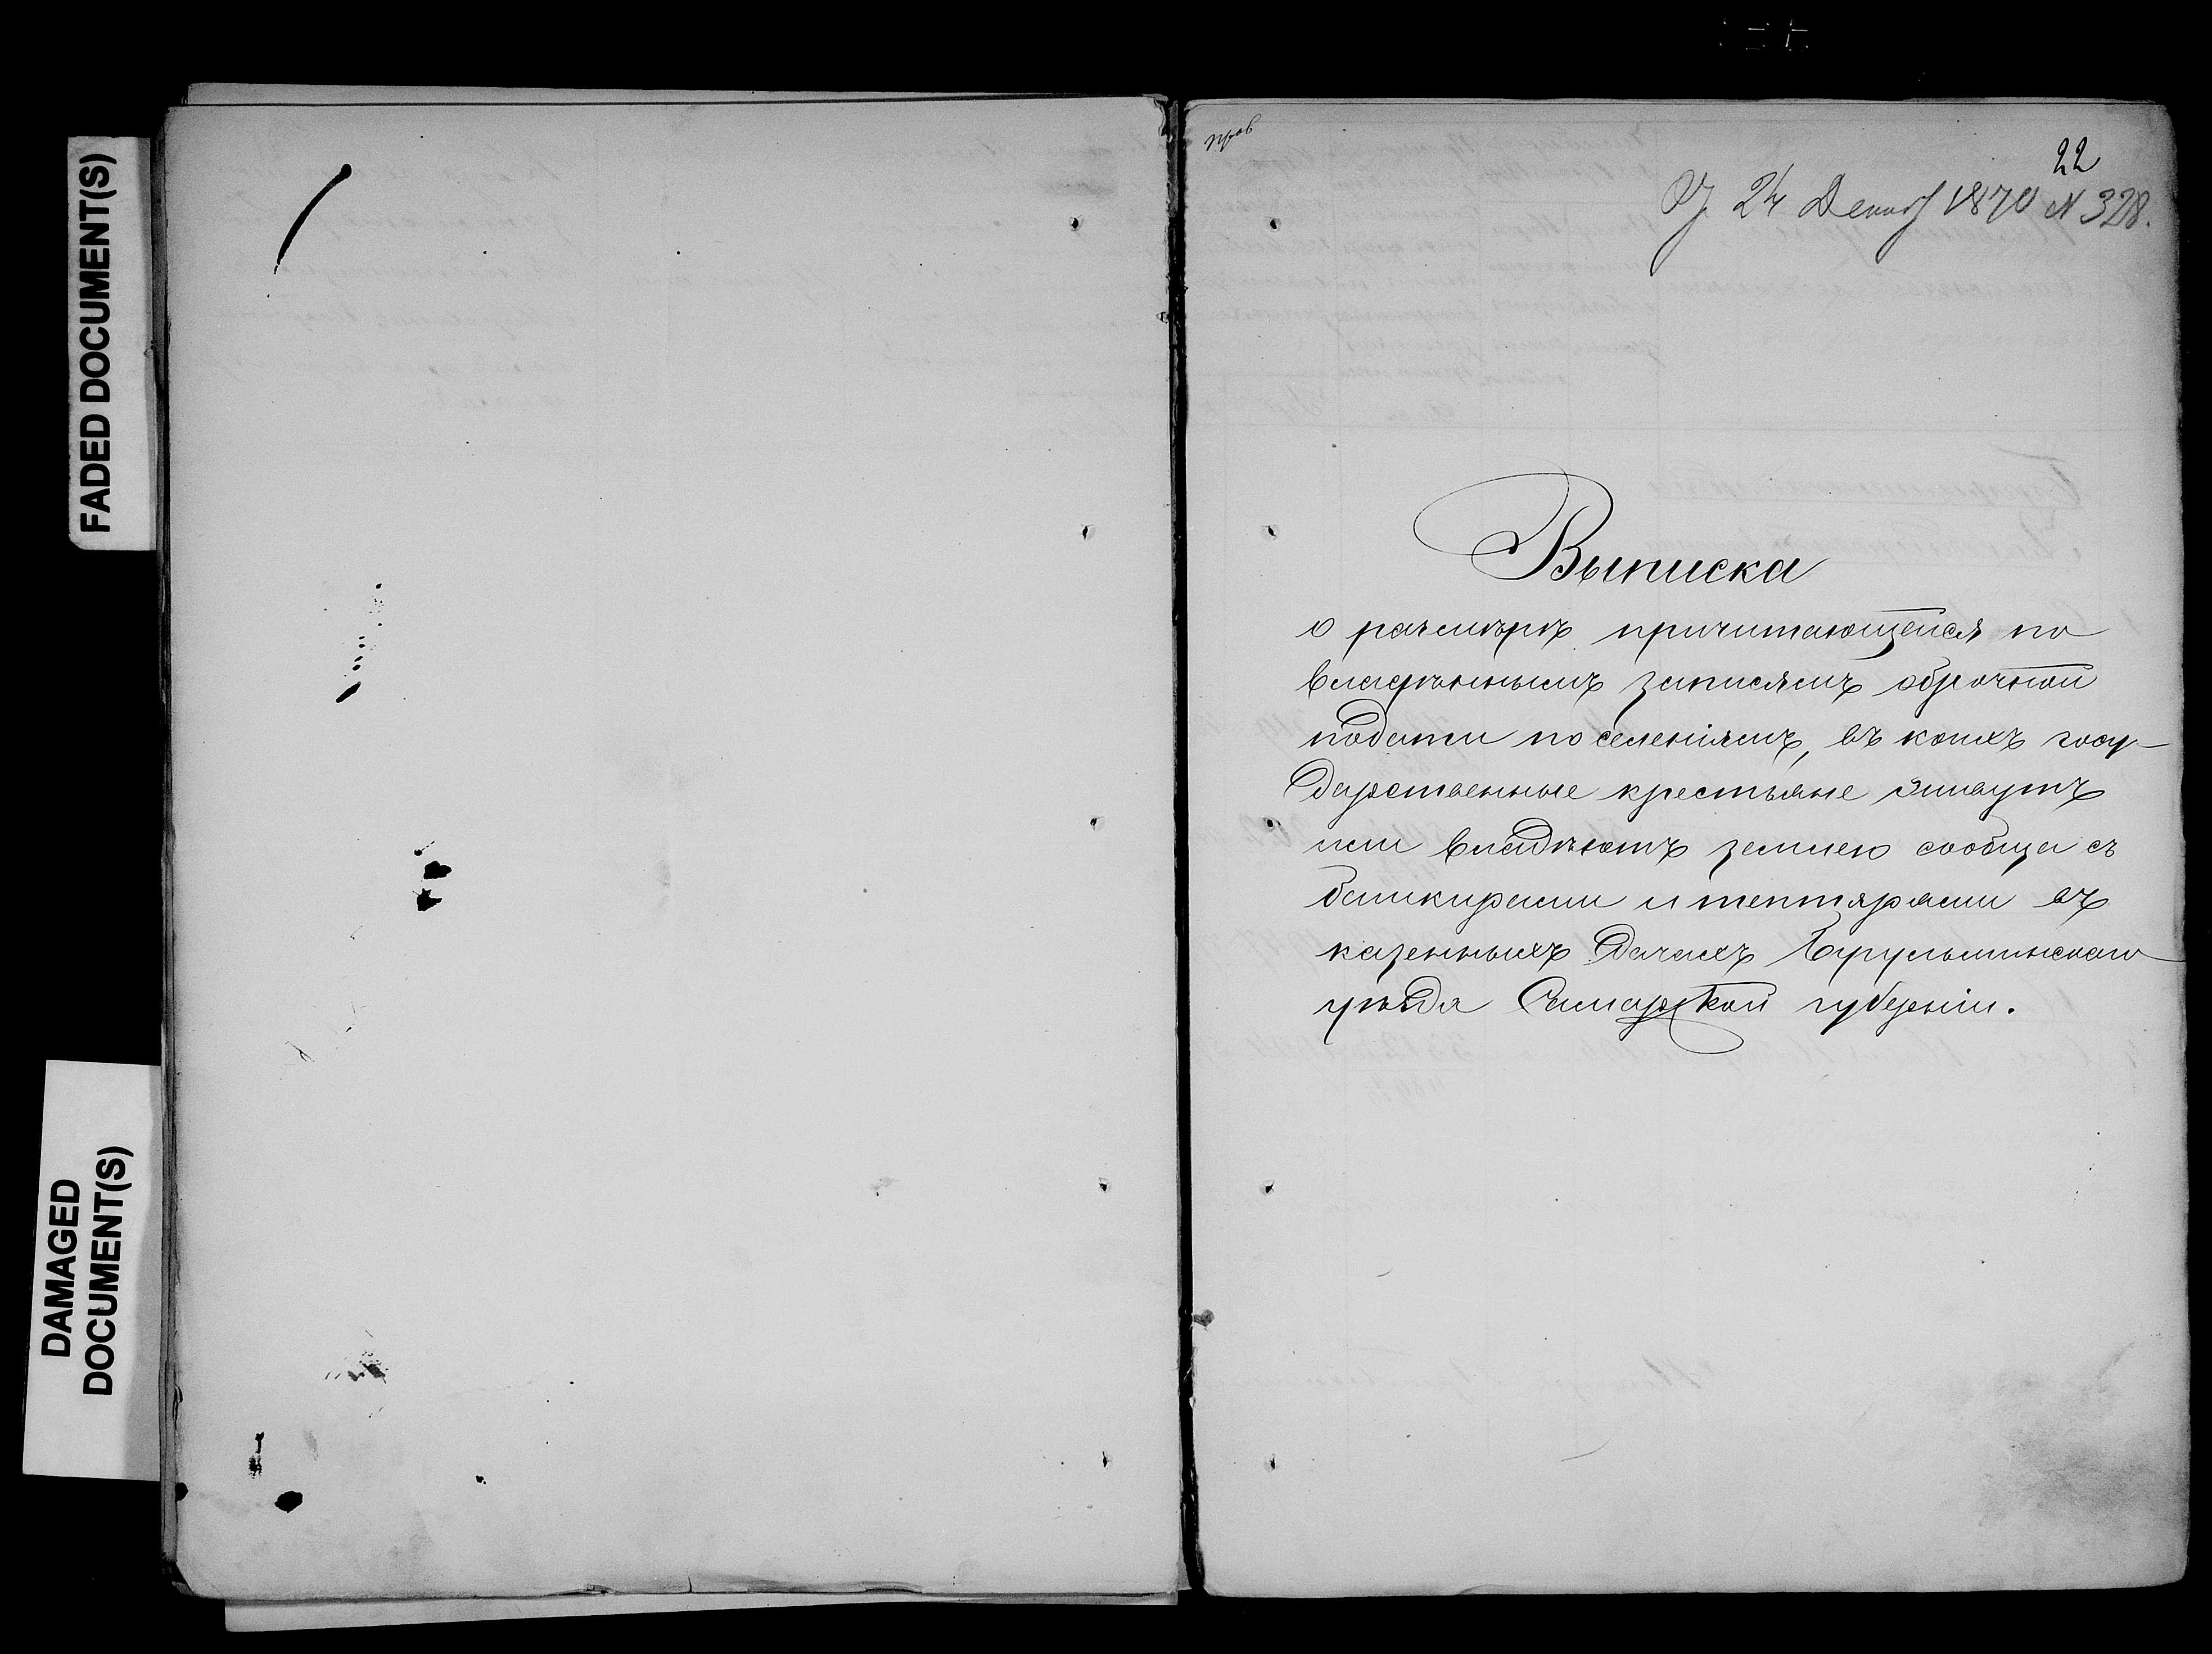 FADED DOCUMENT(S)
DAMAGED
DOCUMENT(S)
22
24 Декаб 1870 N 328.
Выписка
о размѣрѣ причитающейся по
владѣннымъ записямъ оброчной
подати по селеніямъ, въ коихъ госу-
дарственные крестьяне живутъ
или владѣютъ землею сообща съ
башкирами и тептярями въ
казенныхъ дачахъ Бугульминскаго
уѣзда Самарской губерніи.